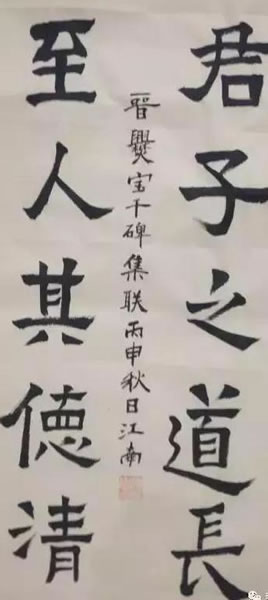 君子之道長
晉爨宝子碑集联丙申秋日江南
至人其德清